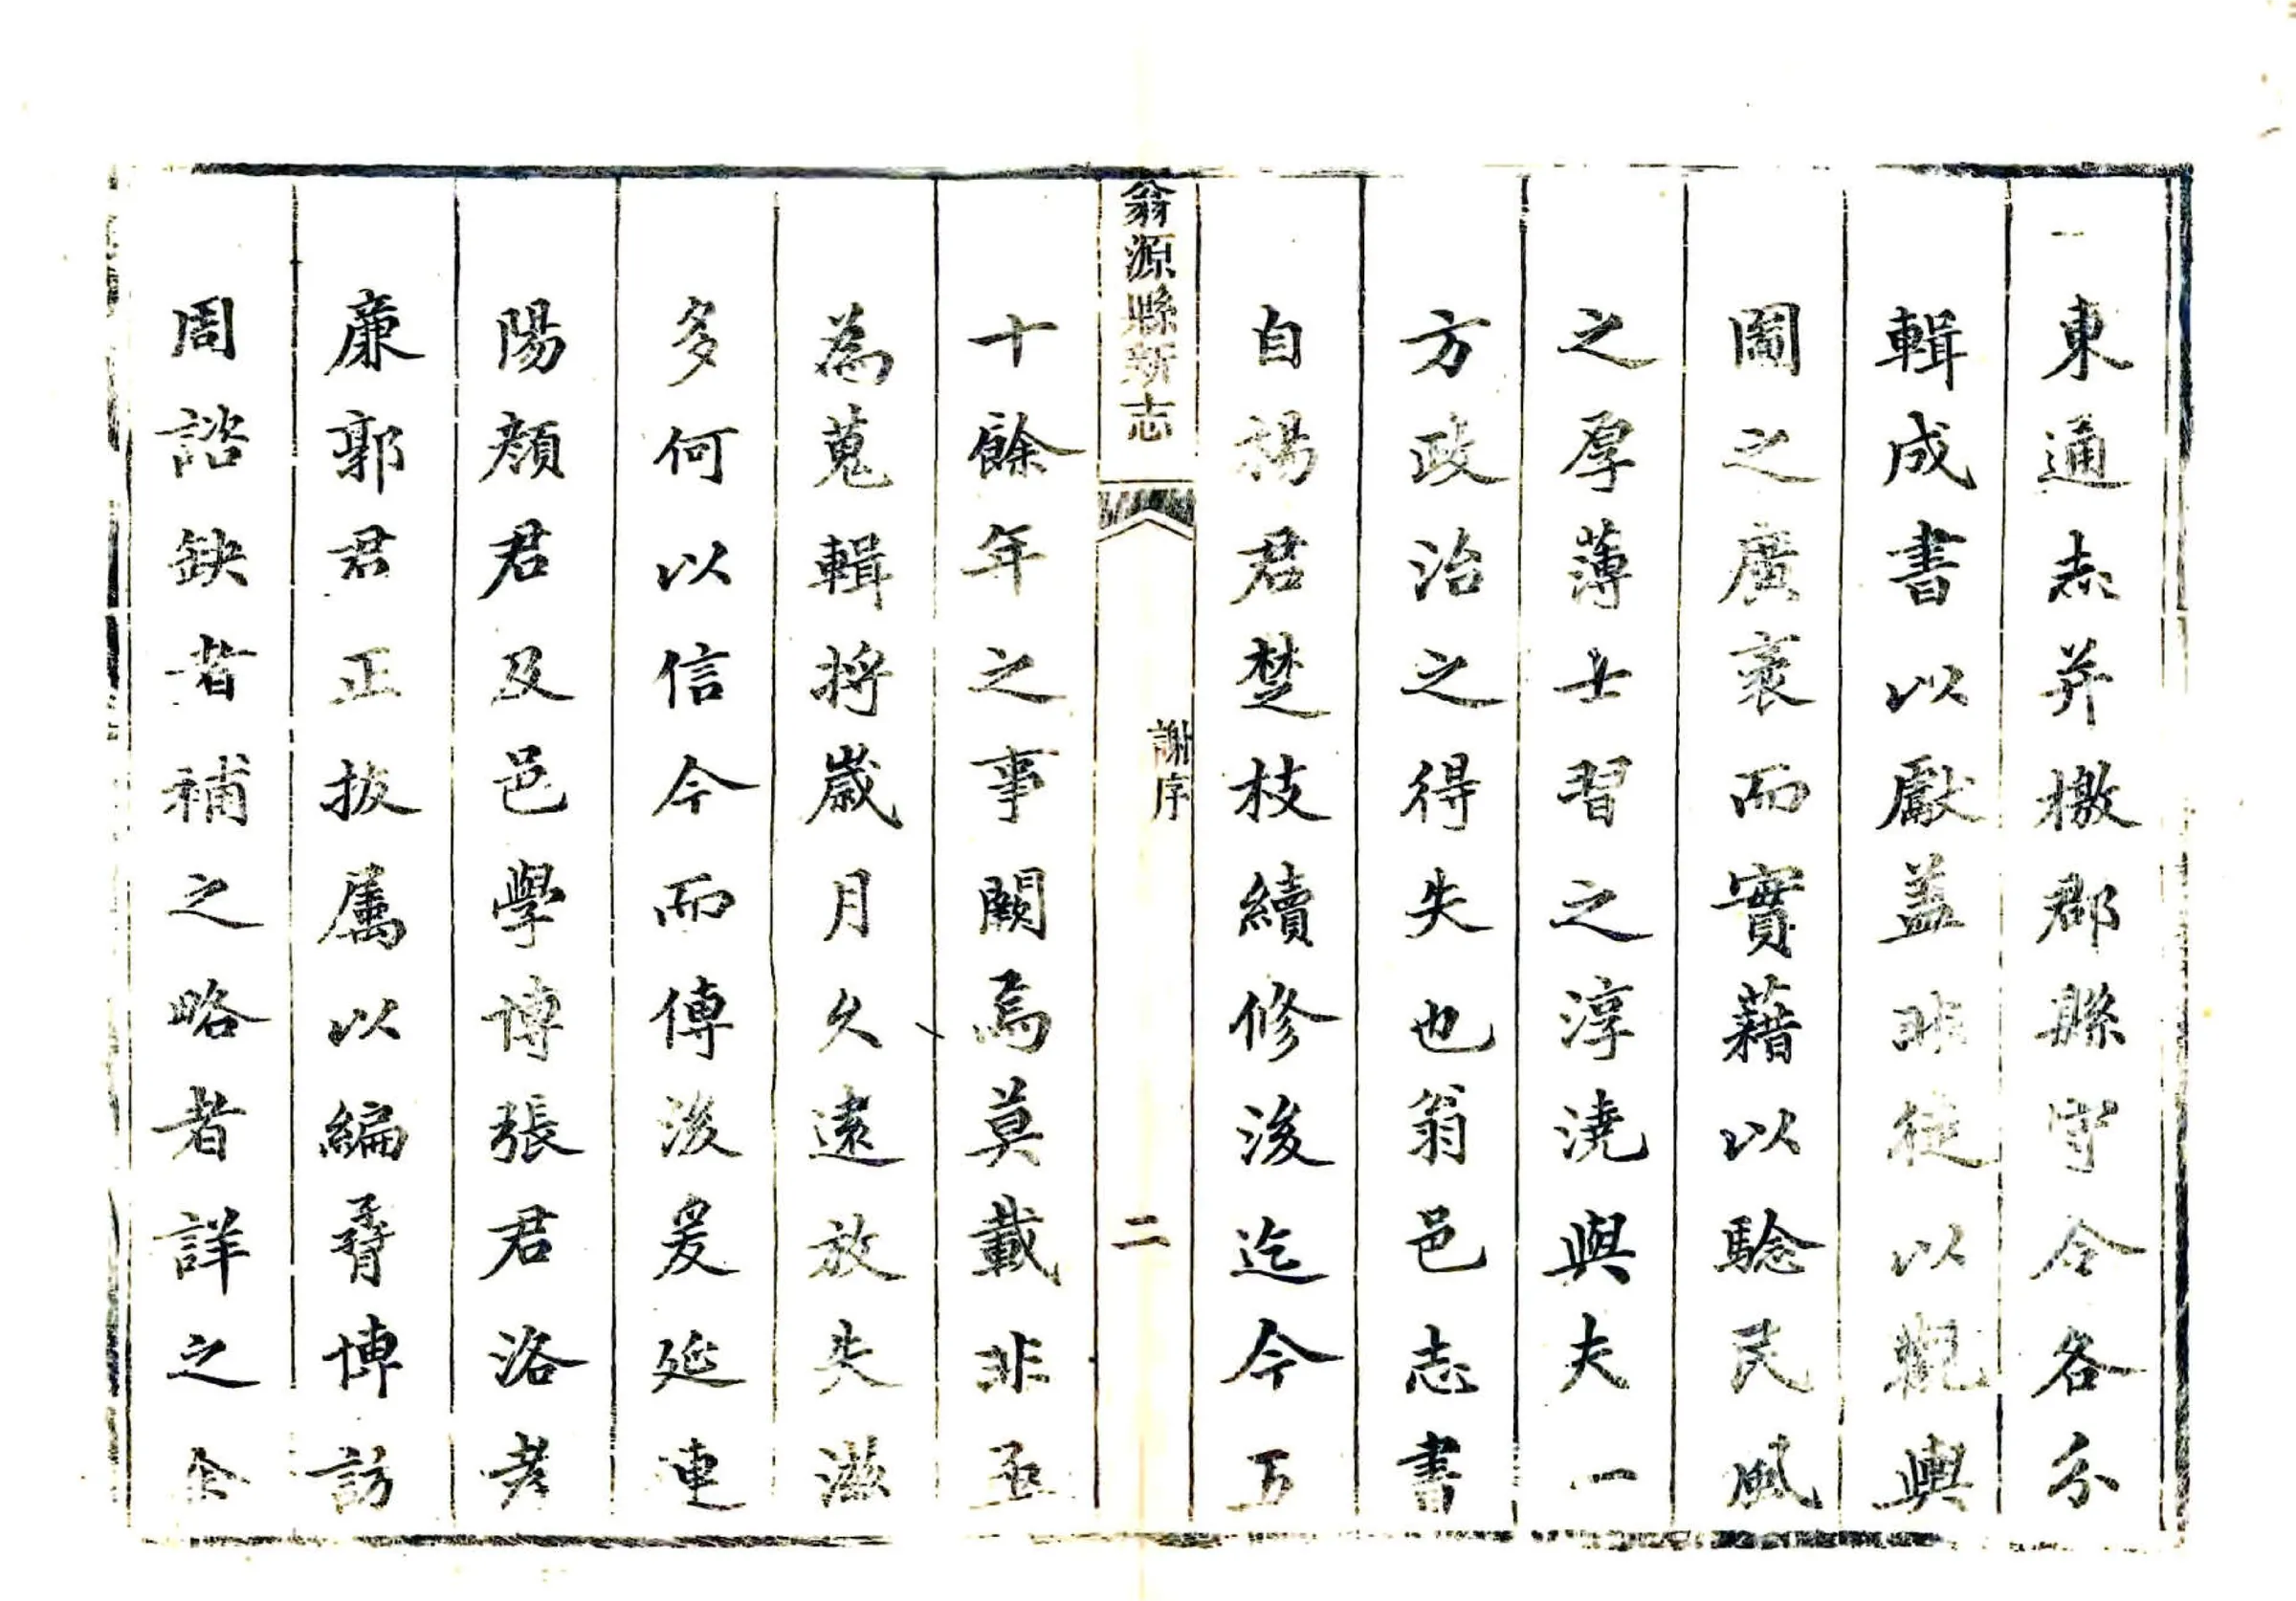 東通志并檄郡縣守令各分
輯成書以獻蓋非徒以觀輿
圖之廣袤而實藉以騐民風
之厚薄士習之淳澆與夫一
方政治之得失也翁邑志書
自楊君楚枝續修後迄今五
翁源縣新志
謝序
二
十餘年之事闕焉莫載非亟
為蒐輯將歲月久遠放失滋
多何以信今而傳後爰延連
陽顏君及邑學博張君洛耆
廉郭君正拔屬以編脊博訪
周諮缺者補之略者詳之全